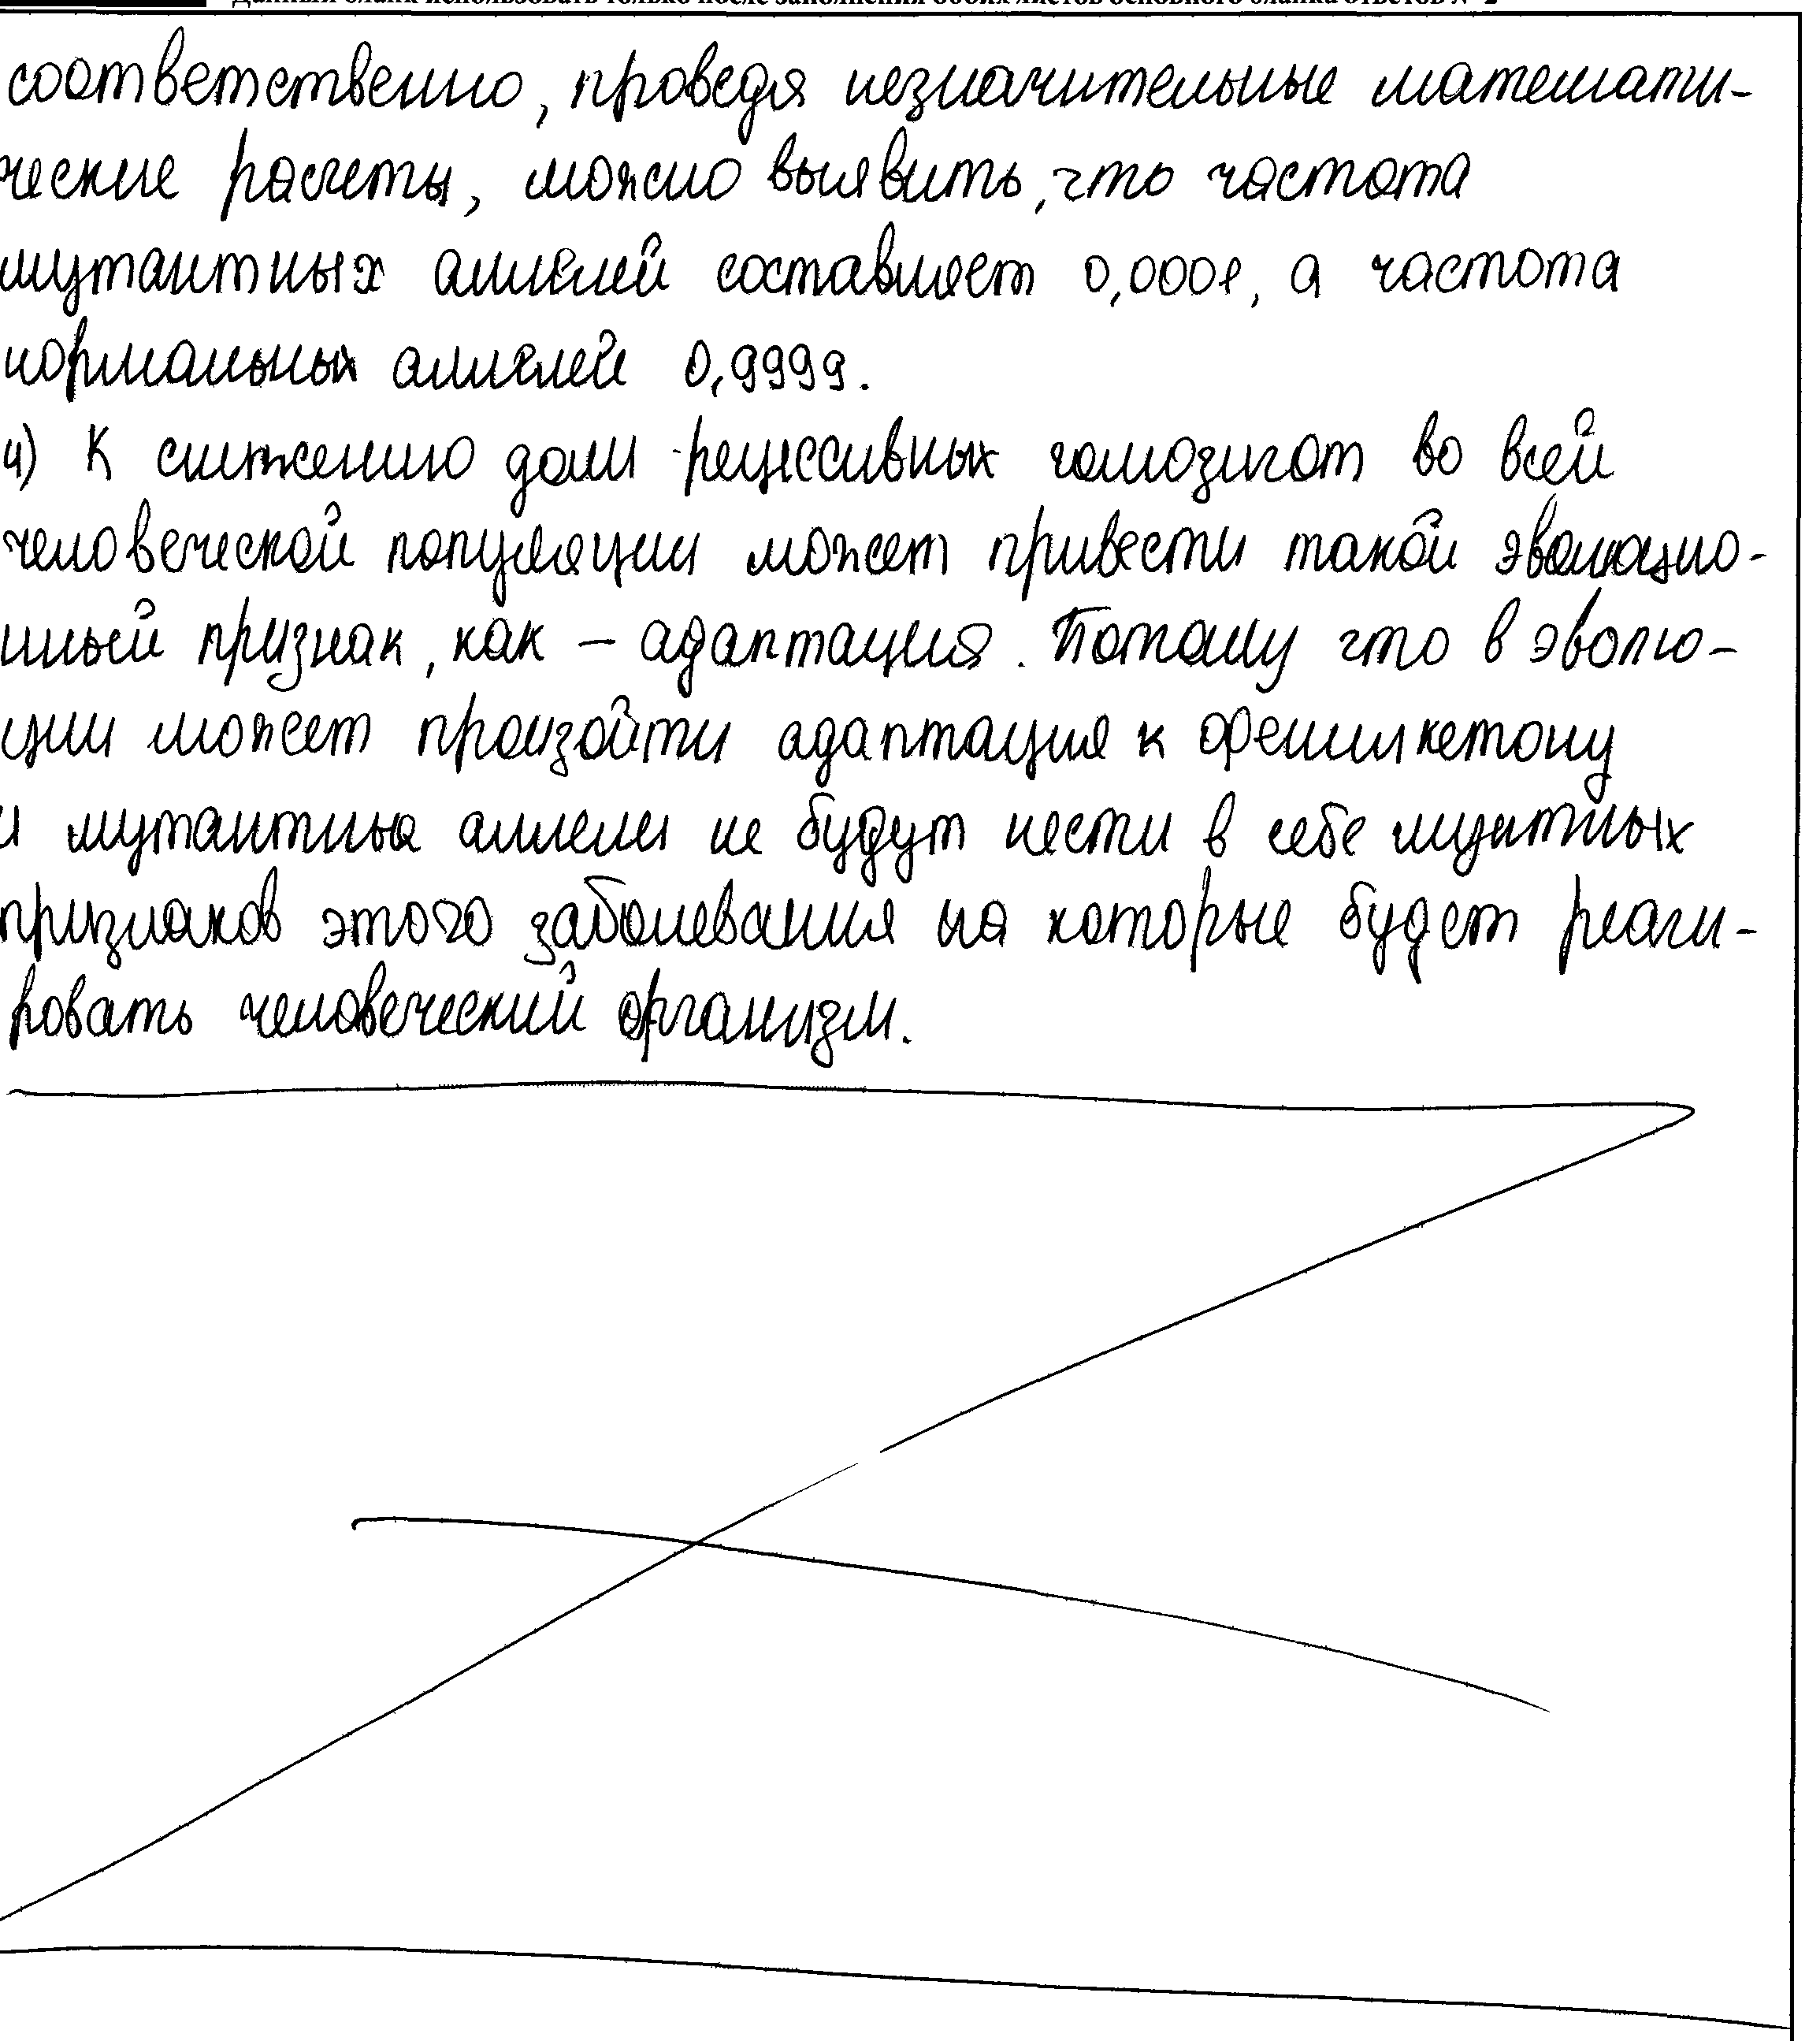 Данный бланк использовать только после заполнения обоих листов основного бланка ответов № 2
соответственно, проведя незначительные математи-
ческие расчеты, можно выявить, что частота
мутантных аллелей составляет 0,0001, а частота
нормальных аллелей 0,9999.
4) К снижению доли рецессивных гомозигот во всей
человеческой популяции может привести такой эволюцио-
нный признак, как – адаптация. Потому что в эволю-
ции может произойти адаптация к фенилкетону
и мутантные аллели не будут нести в себе
признаков этого заболевания на которые будет реаги-
ровать человеческий организм.